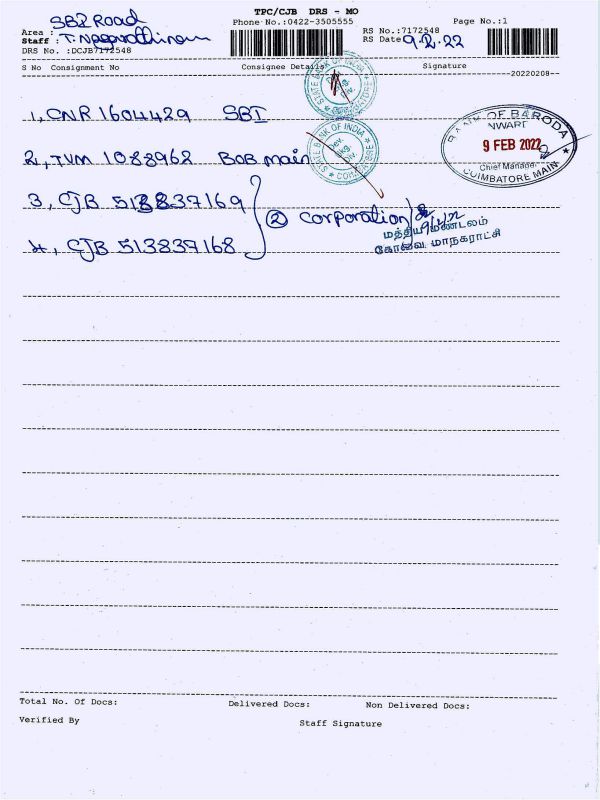 TPC/CJB DRS - MO
Phone No.:0422-3505555
Page No.:1
SBI Road
Area :
RS No.:7172548
Staff : T.
RS Date: 9.2.22
DRS No. :DCJB7172548
S No Consignment No Consignee Details Signature
20220208
1, CNR 1604429 SBI
STATE BANK OF INDIA
COIMBATORE
BANK OF BARODA
INWART
9 FEB 2022
Chief Manager
COIMBATORE MAIN
2, TVM 1088962 BOB main
STATE BANK OF INDIA
3, CJB 513837169
② Corporation
மத்திய மண்டலம்
கோவை மாநகராட்சி
4, CJB 513837168
Total No. Of Docs: Delivered Docs: Non Delivered Docs:
Verified By Staff Signature